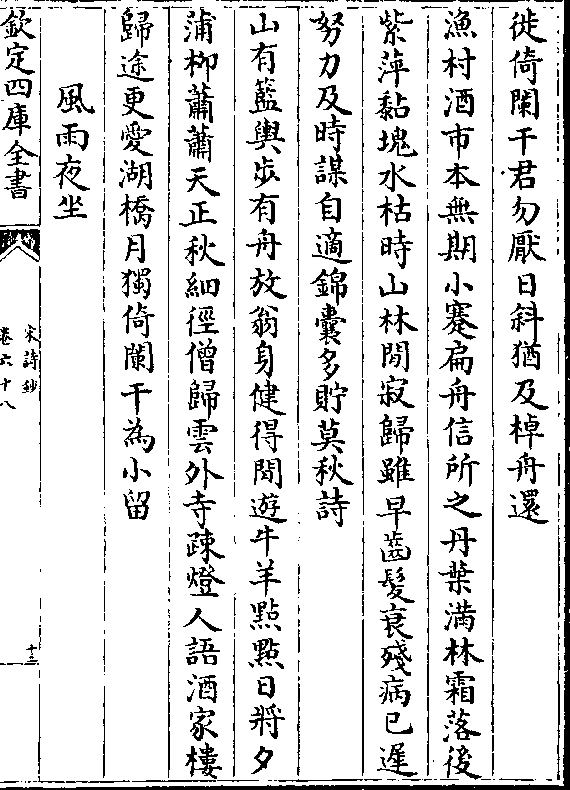 徙倚闌干君勿厭日斜猶及棹舟還
漁村酒市本無期小蹇扁舟信所之丹葉滿林霜落後
紫萍黏塊水枯時山林閒寂歸雖早齒髮衰殘病已遲
努力及時謀自適錦囊多貯莫秋詩
山有籃輿步有舟放翁身健得閒遊牛羊點點日將夕
蒲柳蕭蕭天正秋細徑僧歸雲外寺踈燈人語酒家樓
歸途更愛湖橋月獨倚闌干為小留
風雨夜坐
欽定四庫全書
宋詩鈔
卷六十八
十三